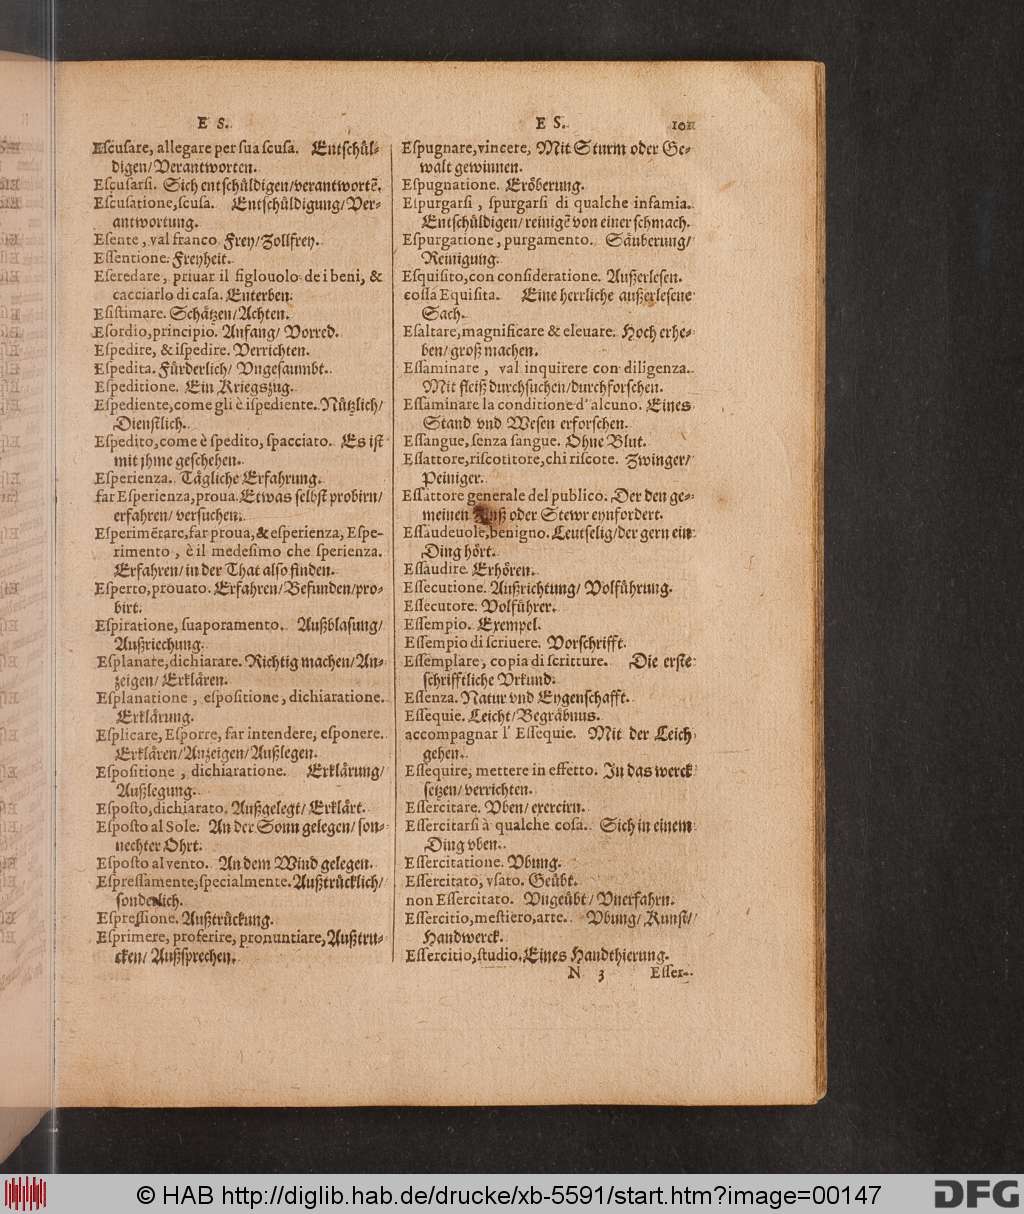 E S.
Escusare, allegare per sua scusa. Entschül-
digen/Verantworten.
Escusarsi. Sich entschüldigen/verantwortẽ.
Escusatione,scusa. Entschüldigung/Ver-
antwortung.
Esente, val franco. Frey/Zollfrey.
Essentione. Freyheit.
Eseredare, priuar il figlouolo de i beni, &
cacciarlo di casa. Enterben.
Esistimare. Schätzen/Achten.
Esordio,principio. Anfang/ Vorred.
Espedire, & ispedire. Verrichten.
Espedita. Fürderlich/ Vngesaumbt.
Espeditione. Ein Kriegszug.
Espediente,come gli è ispediente. Nützlich/
Dienstlich.
Espedito,come è spedito, spacciato. Es ist
mit jhme geschehen.
Esperienza. Tägliche Erfahrung.
far Esperienza,proua. Etwas selbst probirn/
erfahren/ versuchen.
Esperimẽtare,far proua,& esperienza, Espe-
rimento, è il medesimo che sperienza.
Erfahren/in der That also finden.
Esperto,prouato. Erfahren/Befunden/pro-
birt.
Espiratione, suaporamento. Außblasung/
Außriechung.
Esplanare,dichiarare. Richtig machen/An-
zeigen/ Erklären.
Esplanatione, espositione, dichiaratione.
Erklärung.
Esplicare, Esporre, far intendere, esponere.
Erklären/Anzeigen/Außlegen.
Espositione, dichiaratione. Erklärung/
Außlegung.
Esposto,dichiarato. Außgelegt/ Erklärt.
Esposto al Sole. An der Sonn gelegen/ son-
nechter Ohrt.
Esposto al vento. An dem Wind gelegen.
Espressamente,specialmente. Außtrücklich/
sonderlich.
Espressione. Außtrückung.
Esprimere, proferire, pronuntiare, Außtru-
cken/ Außsprechen.
E S. 101
Espugnare,vincere, Mit Sturm oder Ge-
walt gewinnen.
Espugnatione. Eröberung.
Espurgarsi, spurgarsi di qualche infamia.
Entschüldigen/ reinigẽ von einer schmach.
Espurgatione, purgamento. Säuberung/
Reinigung.
Esquisito,con consideratione. Außerlesen.
cossa Equisita. Eine herrliche außerlesene
Sach.
Esaltare,magnificare & eleuare. Hoch erhe-
ben/ groß machen.
Essaminare, val inquirere con diligenza.
Mit fleiß durchsuchen/durchforschen.
Essaminare la conditione d'alcuno. Eines
Stand vnd Wesen erforschen.
Essangue,senza sangue. Ohne Blut.
Essattore,riscotitore,chi riscote. Zwinger/
Peiniger.
Essattore generale del publico. Der den ge-
meinen oder Stewr eynfordert.
Essaudeuole,benigno. Leutselig/der gern ein
Ding hört.
Essaudire. Erhören.
Essecutione. Außrichtung/ Volführung.
Essecutore. Volführer.
Essempio. Exempel.
Essempio di scriuere. Vorschrifft.
Essemplare, copia di scritture. Die erste
schrifftliche Vrkund.
Essenza. Natur vnd Eygenschafft.
Essequie. Leicht/Begräbnus.
accompagnar l' Essequie. Mit der Leich
gehen.
Essequire, mettere in effetto. In das werck
setzen/ verrichten.
Essercitare. Vben/ exercirn.
Essercitarsi à qualche cosa. Sich in einem
Ding vben.
Essercitatione. Vbung.
Essercitato, vsato. Geübt.
non Essercitato. Vngeübt/ Vnerfahrn.
Essercitio,mestiero,arte. Vbung/ Kunst/
Handwerck.
Essercitio,studio. Eines Handthierung.
N 3 Esser-
© HAB http://diglib.hab.de/drucke/xb-5591/start.htm?image=00147
DFG